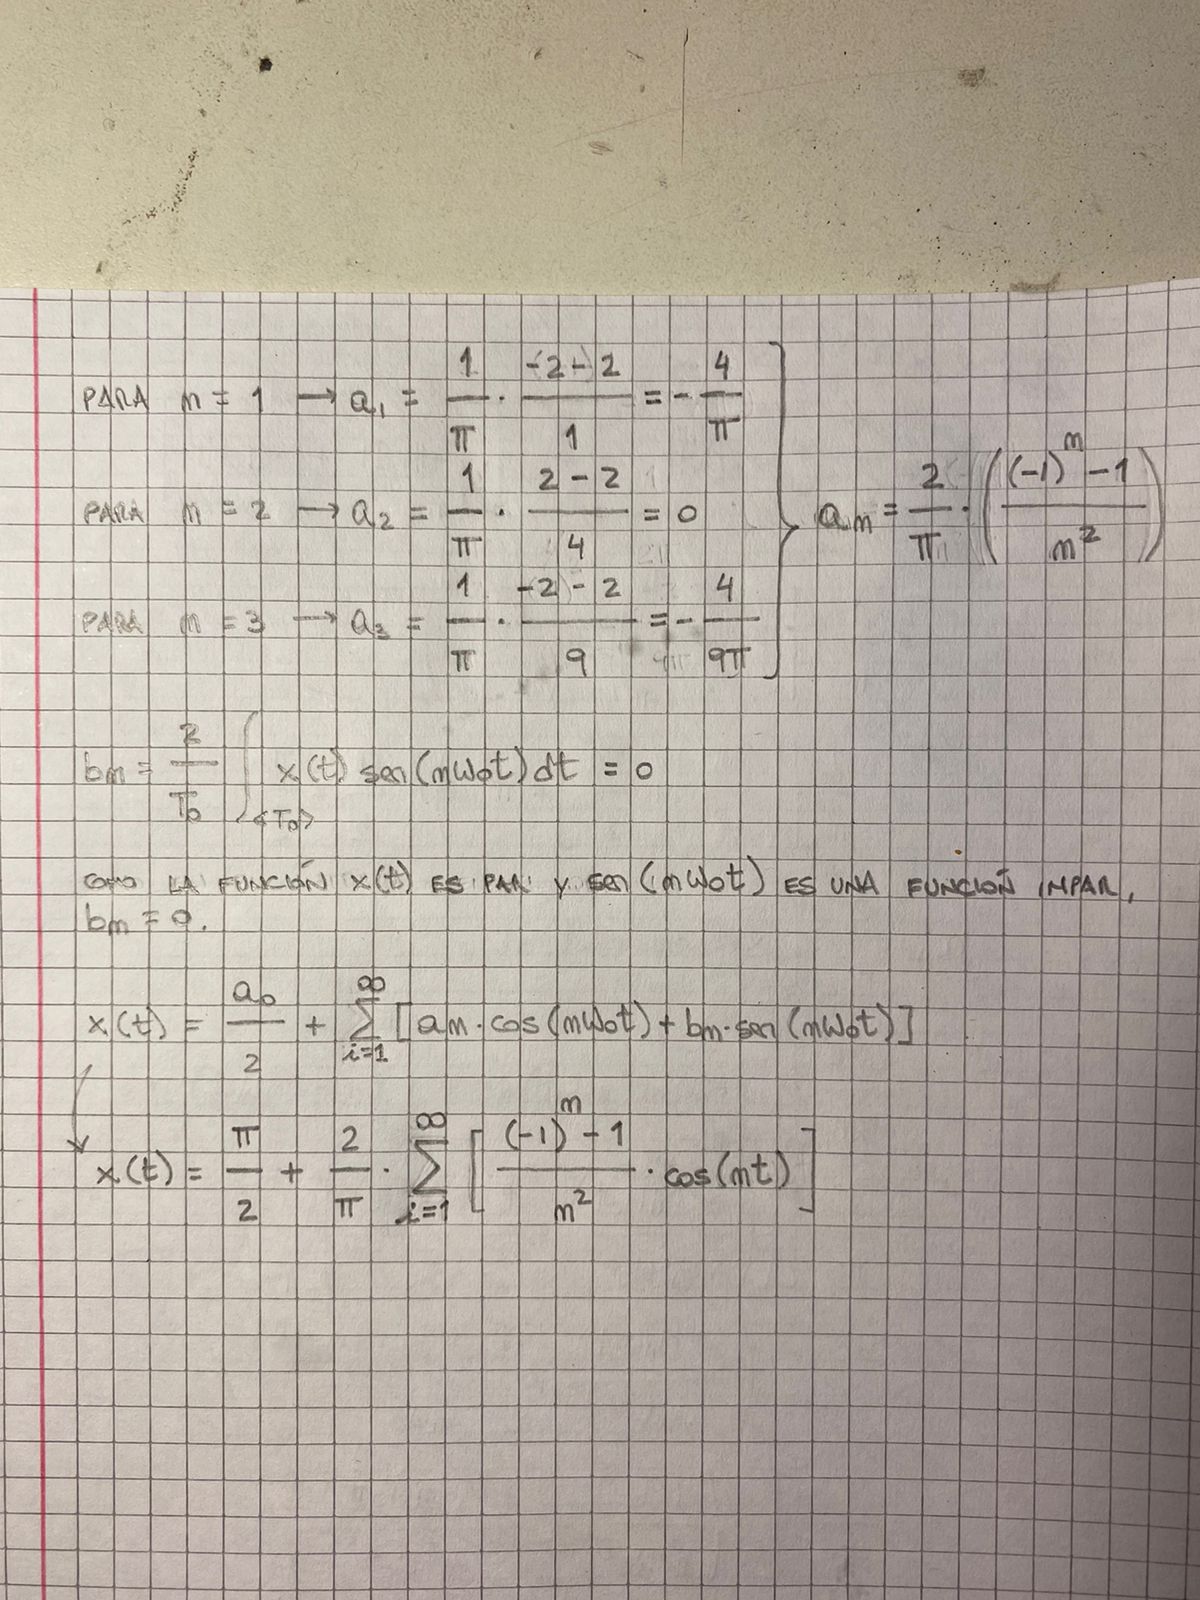 PARA n = 1 → a₁ = 1/π · (-2-2)/1 = - 4/π
PARA n = 2 → a₂ = 1/π · (2-2)/4 = 0
PARA n = 3 → a₃ = 1/π · (-2-2)/9 = - 4/9π
} aₙ = 2/π · (((-1)ⁿ - 1)/n²)
bₙ = 2/T₀ ∫<T₀> x(t) sen(nω₀t) dt = 0
COMO LA FUNCIÓN x(t) ES PAR Y sen(nω₀t) ES UNA FUNCIÓN IMPAR,
bₙ = 0.
x(t) = a₀/2 + ∞∑i=1 [aₙ · cos(nω₀t) + bₙ · sen(nω₀t)]
x(t) = π/2 + 2/π · ∞∑i=1 [((-1)ⁿ - 1)/n² · cos(nt)]